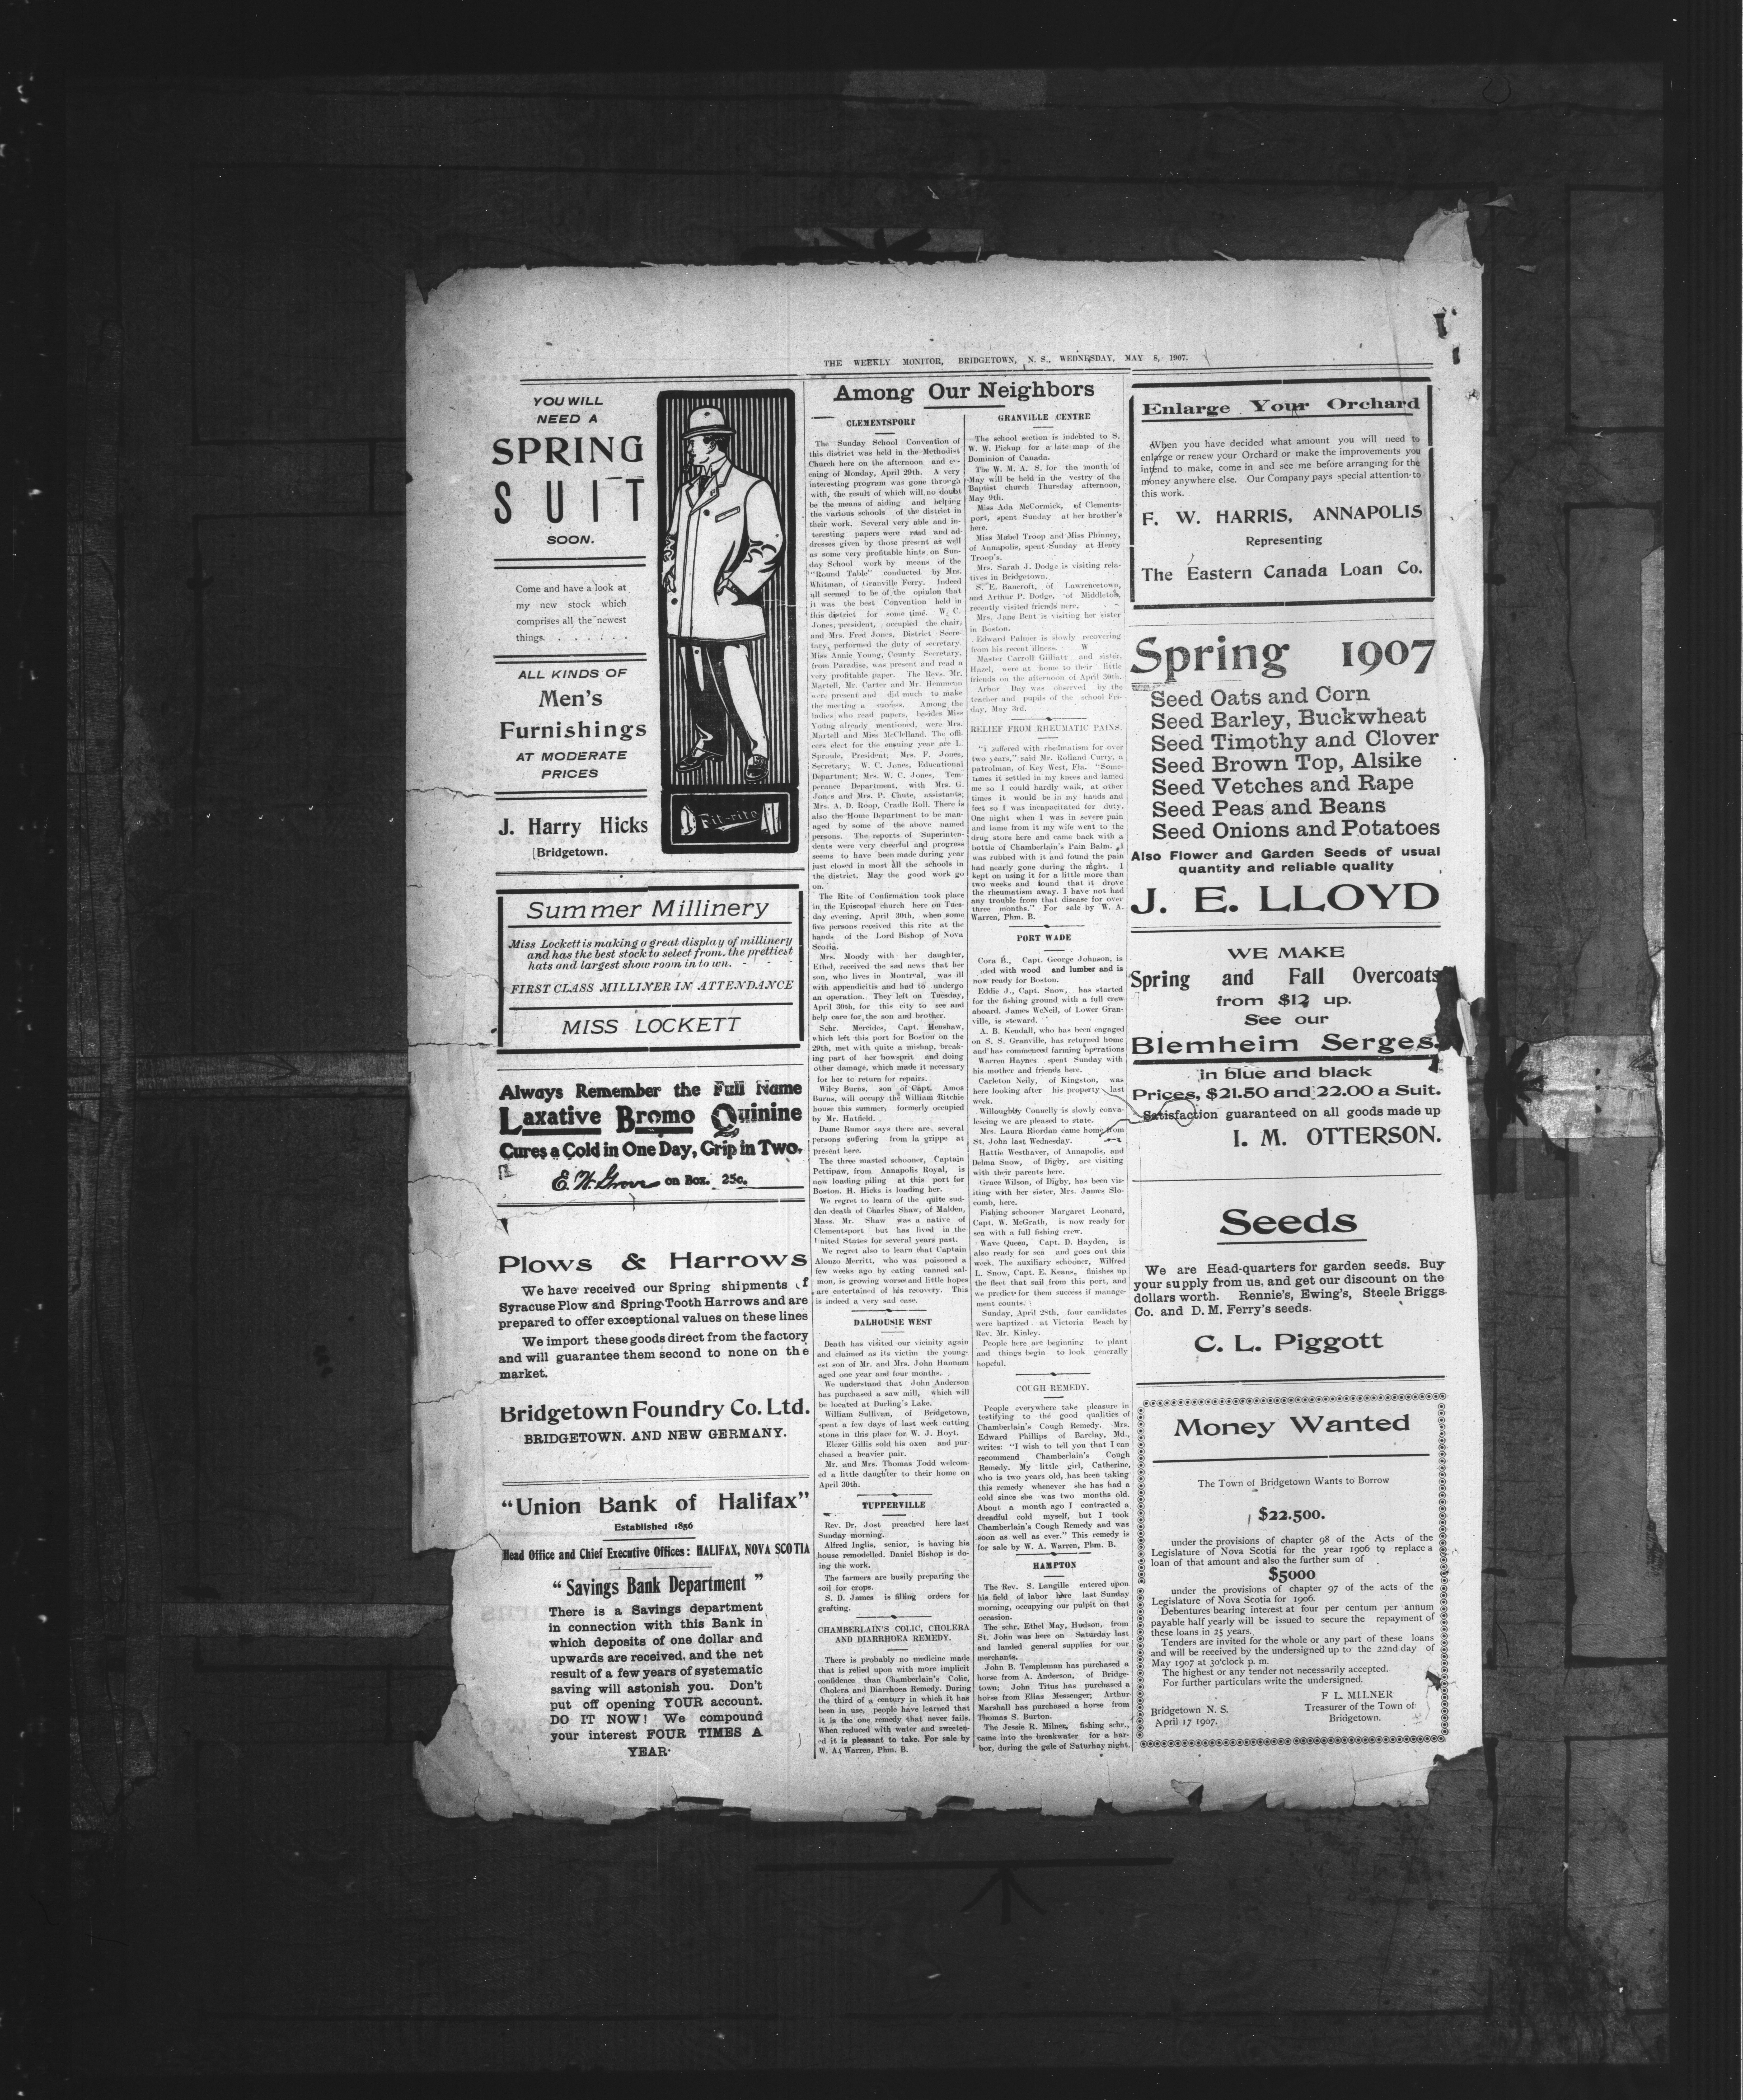 THE WEEKLY MONITOR, BRIDGETOWN, N. S., WEDNESDAY, MAY 8, 1907.
YOU WILL
NEED A
SPRING
SUIT
SOON.
Come and have a look at
my new stock which
comprises all the newest
things. . . . . . .
ALL KINDS OF
Men's
Furnishings
AT MODERATE
PRICES
J. Harry Hicks
Bridgetown.
Fit-rite
Summer Millinery
Miss Lockett is making a great display of millinery
and has the best stock to select from, the prettiest
hats and largest show room in town. - - -
FIRST CLASS MILLINER IN ATTENDANCE
MISS LOCKETT
Always Remember the Full Name
Laxative Bromo Quinine
Cures a Cold in One Day, Grip in Two.
E. W. Grove on Box. 25c.
Plows & Harrows
We have received our Spring shipments of
Syracuse Plow and Spring-Tooth Harrows and are
prepared to offer exceptional values on these lines
We import these goods direct from the factory
and will guarantee them second to none on the
market.
Bridgetown Foundry Co. Ltd.
BRIDGETOWN. AND NEW GERMANY.
"Union Bank of Halifax"
Established 1856
Head Office and Chief Executive Offices: HALIFAX, NOVA SCOTIA
"Savings Bank Department"
There is a Savings department
in connection with this Bank in
which deposits of one dollar and
upwards are received, and the net
result of a few years of systematic
saving will astonish you. Don't
put off opening YOUR account.
DO IT NOW! We compound
your interest FOUR TIMES A
YEAR.
Among Our Neighbors
CLEMENTSPORT
The Sunday School Convention of
this district was held in the Methodist
Church here on the afternoon and ev-
ening of Monday, April 29th. A very
interesting program was gone through
with, the result of which will no doubt
be the means of aiding and helping
the various schools of the district in
their work. Several very able and in-
teresting papers were read and ad-
dresses given by those present as well
as some very profitable hints on Sun-
day School work by means of the
"Round Table" conducted by Mrs.
Whitman, of Granville Ferry. Indeed
all seemed to be of the opinion that
it was the best Convention held in
this district for some time. W. C.
Jones, president, occupied the chair,
and Mrs. Fred Jones, District Secre-
tary, performed the duty of secretary.
Miss Annie Young, County Secretary,
from Paradise, was present and read a
very profitable paper. The Revs. Mr.
Martell, Mr. Carter and Mr. Hemmeon
were present and did much to make
the meeting a success. Among the
ladies who read papers, besides Miss
Young already mentioned, were Mrs.
Martell and Miss McClelland. The offi-
cers elect for the ensuing year are L.
Sproule, President; Mrs. F. Jones,
Secretary; W. C. Jones, Educational
Department; Mrs. W. C. Jones, Tem-
perance Department, with Mrs. G.
Jones and Mrs. P. Chute, assistants;
Mrs. A. D. Roop, Cradle Roll. There is
also the Home Department to be man-
aged by some of the above named
persons. The reports of Superinten-
dents were very cheerful and progress
seems to have been made during year
just closed in most all the schools in
the district. May the good work go
on.
The Rite of Confirmation took place
in the Episcopal church here on Tues-
day evening, April 30th, when some
five persons received this rite at the
hands of the Lord Bishop of Nova
Scotia.
Mrs. Moody with her daughter,
Ethel, received the sad news that her
son, who lives in Montreal, was ill
with appendicitis and had to undergo
an operation. They left on Tuesday,
April 30th, for this city to see and
help care for the son and brother.
Schr. Mercides, Capt. Henshaw,
which left this port for Boston on the
29th, met with quite a mishap, break-
ing part of her bowsprit and doing
other damage, which made it necessary
for her to return for repairs.
Wiley Burns, son of Capt. Amos
Burns, will occupy the William Ritchie
house this summer, formerly occupied
by Mr. Hatfield.
Dame Rumor says there are several
persons suffering from la grippe at
present here.
The three masted schooner, Captain
Pettipaw, from Annapolis Royal, is
now loading piling at this port for
Boston. H. Hicks is loading her.
We regret to learn of the quite sud-
den death of Charles Shaw, of Malden,
Mass. Mr. Shaw was a native of
Clementsport but has lived in the
United States for several years past.
We regret also to learn that Captain
Alonzo Merritt, who was poisoned a
few weeks ago by eating canned sal-
mon, is growing worse and little hopes
are entertained of his recovery. This
is indeed a very sad case.
DALHOUSIE WEST
Death has visited our vicinity again
and claimed as its victim the young-
est son of Mr. and Mrs. John Hannam
aged one year and four months.
We understand that John Anderson
has purchased a saw mill, which will
be located at Darling's Lake.
William Sullivan, of Bridgetown,
spent a few days of last week cutting
stone in this place for W. J. Hoyt.
Elezer Gillis sold his oxen and pur-
chased a heavier pair.
Mr. and Mrs. Thomas Todd welcom-
ed a little daughter to their home on
April 30th.
TUPPERVILLE
Rev. Dr. Jost preached here last
Sunday morning.
Alfred Inglis, senior, is having his
house remodelled. Daniel Bishop is do-
ing the work.
The farmers are busily preparing the
soil for crops.
S. D. James is filling orders for
grafting.
CHAMBERLAIN'S COLIC, CHOLERA
AND DIARRHOEA REMEDY.
There is probably no medicine made
that is relied upon with more implicit
confidence than Chamberlain's Colic,
Cholera and Diarrhoea Remedy. During
the third of a century in which it has
been in use, people have learned that
it is the one remedy that never fails.
When reduced with water and sweeten-
ed it is pleasant to take. For sale by
W. A. Warren, Phm. B.
GRANVILLE CENTRE
The school section is indebted to S.
W. W. Pickup for a late map of the
Dominion of Canada.
The W. M. A. S. for the month of
May will be held in the vestry of the
Baptist church Thursday afternoon,
May 9th.
Miss Ada McCormick, of Clements-
port, spent Sunday at her brother's
here.
Miss Mabel Troop and Miss Phinney,
of Annapolis, spent Sunday at Henry
Troop's.
Mrs. Sarah J. Dodge is visiting rela-
tives in Bridgetown.
S. E. Bancroft, of Lawrencetown,
and Arthur P. Dodge, of Middleton,
recently visited friends here.
Mrs. Jane Bent is visiting her sister
in Boston.
Edward Palmer is slowly recovering
from his recent illness. W
Master Carroll Gilliatt and sister,
Hazel, were at home to their little
friends on the afternoon of April 30th.
Arbor Day was observed by the
teacher and pupils of the school Fri-
day, May 3rd.
RELIEF FROM RHEUMATIC PAINS.
"I suffered with rheumatism for over
two years," said Mr. Rolland Curry, a
patrolman, of Key West, Fla. "Some-
times it settled in my knees and lamed
me so I could hardly walk, at other
times it would be in my hands and
feet so I was incapacitated for duty.
One night when I was in severe pain
and lame from it my wife went to the
drug store here and came back with a
bottle of Chamberlain's Pain Balm. I
was rubbed with it and found the pain
had nearly gone during the night. I
kept on using it for a little more than
two weeks and found that it drove
the rheumatism away. I have not had
any trouble from that disease for over
three months." For sale by W. A.
Warren, Phm. B.
PORT WADE
Cora B., Capt. George Johnson, is
ded with wood and lumber and is
now ready for Boston.
Eddie J., Capt. Snow, has started
for the fishing ground with a full crew
aboard. James McNeil, of Lower Gran-
ville, is steward.
A. B. Kendall, who has been engaged
on S. S. Granville, has returned home
and has commenced farming operations
Warren Haynes spent Sunday with
his mother and friends here.
Carleton Neily, of Kingston, was
here looking after his property last
week.
Willoughby Connelly is slowly conva-
lescing we are pleased to state.
Mrs. Laura Riordan came home from
St. John last Wednesday.
Hattie Westhaver, of Annapolis, and
Delma Snow, of Digby, are visiting
with their parents here.
Grace Wilson, of Digby, has been vis-
iting with her sister, Mrs. James Slo-
comb, here.
Fishing schooner Margaret Leonard,
Capt. W. McGrath, is now ready for
sea with a full fishing crew.
Wave Queen, Capt. D. Hayden, is
also ready for sea and goes out this
week. The auxiliary schooner, Wilfred
L. Snow, Capt. E. Keans, finishes up
the fleet that sail from this port, and
we predict for them success if manage-
ment counts.
Sunday, April 28th, four candidates
were baptized at Victoria Beach by
Rev. Mr. Kinley.
People here are beginning to plant
and things begin to look generally
hopeful.
COUGH REMEDY.
People everywhere take pleasure in
testifying to the good qualities of
Chamberlain's Cough Remedy. Mrs.
Edward Phillips of Barclay, Md.,
writes: "I wish to tell you that I can
recommend Chamberlain's Cough
Remedy. My little girl, Catherine,
who is two years old, has been taking
this remedy whenever she has had a
cold since she was two months old.
About a month ago I contracted a
dreadful cold myself, but I took
Chamberlain's Cough Remedy and was
soon as well as ever." This remedy is
for sale by W. A. Warren, Phm. B.
HAMPTON
The Rev. S. Langille entered upon
his field of labor here last Sunday
morning, occupying our pulpit on that
occasion.
The schr. Ethel May, Hudson, from
St. John was here on Saturday last
and landed general supplies for our
merchants.
John B. Templeman has purchased a
horse from A. Anderson, of Bridge-
town; John Titus has purchased a
horse from Elias Messenger; Arthur
Marshall has purchased a horse from
Thomas S. Burton.
The Jessie R. Milner, fishing schr.,
came into the breakwater for a har-
bor, during the gale of Saturhay night.
Enlarge Your Orchard
When you have decided what amount you will need to
enlarge or renew your Orchard or make the improvements you
intend to make, come in and see me before arranging for the
money anywhere else. Our Company pays special attention to
this work.
F. W. HARRIS, ANNAPOLIS
Representing
The Eastern Canada Loan Co.
Spring 1907
Seed Oats and Corn
Seed Barley, Buckwheat
Seed Timothy and Clover
Seed Brown Top, Alsike
Seed Vetches and Rape
Seed Peas and Beans
Seed Onions and Potatoes
Also Flower and Garden Seeds of usual
quantity and reliable quality
J. E. LLOYD
WE MAKE
Spring and Fall Overcoats
from $12 up.
See our
Blemheim Serges.
in blue and black
Prices, $21.50 and 22.00 a Suit.
Satisfaction guaranteed on all goods made up
I. M. OTTERSON.
Seeds
We are Head-quarters for garden seeds. Buy
your supply from us, and get our discount on the
dollars worth. Rennie's, Ewing's, Steele Briggs
Co. and D. M. Ferry's seeds.
C. L. Piggott
Money Wanted
The Town of Bridgetown Wants to Borrow
$22.500.
under the provisions of chapter 98 of the Acts of the
Legislature of Nova Scotia for the year 1906 to replace a
loan of that amount and also the further sum of
$5000
under the provisions of chapter 97 of the acts of the
Legislature of Nova Scotia for 1906.
Debentures bearing interest at four per centum per annum
payable half yearly will be issued to secure the repayment of
these loans in 25 years.
Tenders are invited for the whole or any part of these loans
and will be received by the undersigned up to the 22nd day of
May 1907 at 3o'clock p. m.
The highest or any tender not necessarily accepted.
For further particulars write the undersigned.
F L. MILNER
Treasurer of the Town of
Bridgetown.
Bridgetown N. S.
April 17 1907.